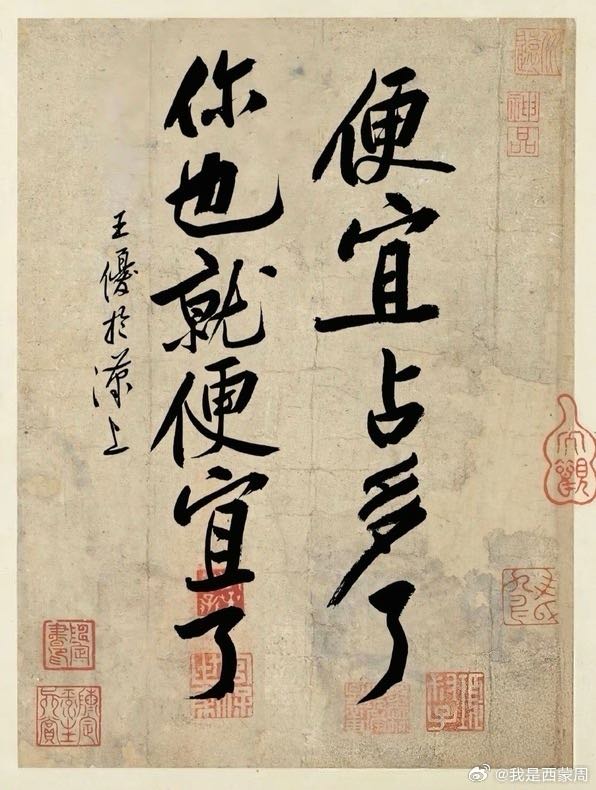 便宜占多了
你也就便宜了
王優於漢上
神品
大觀
@我是西蒙周